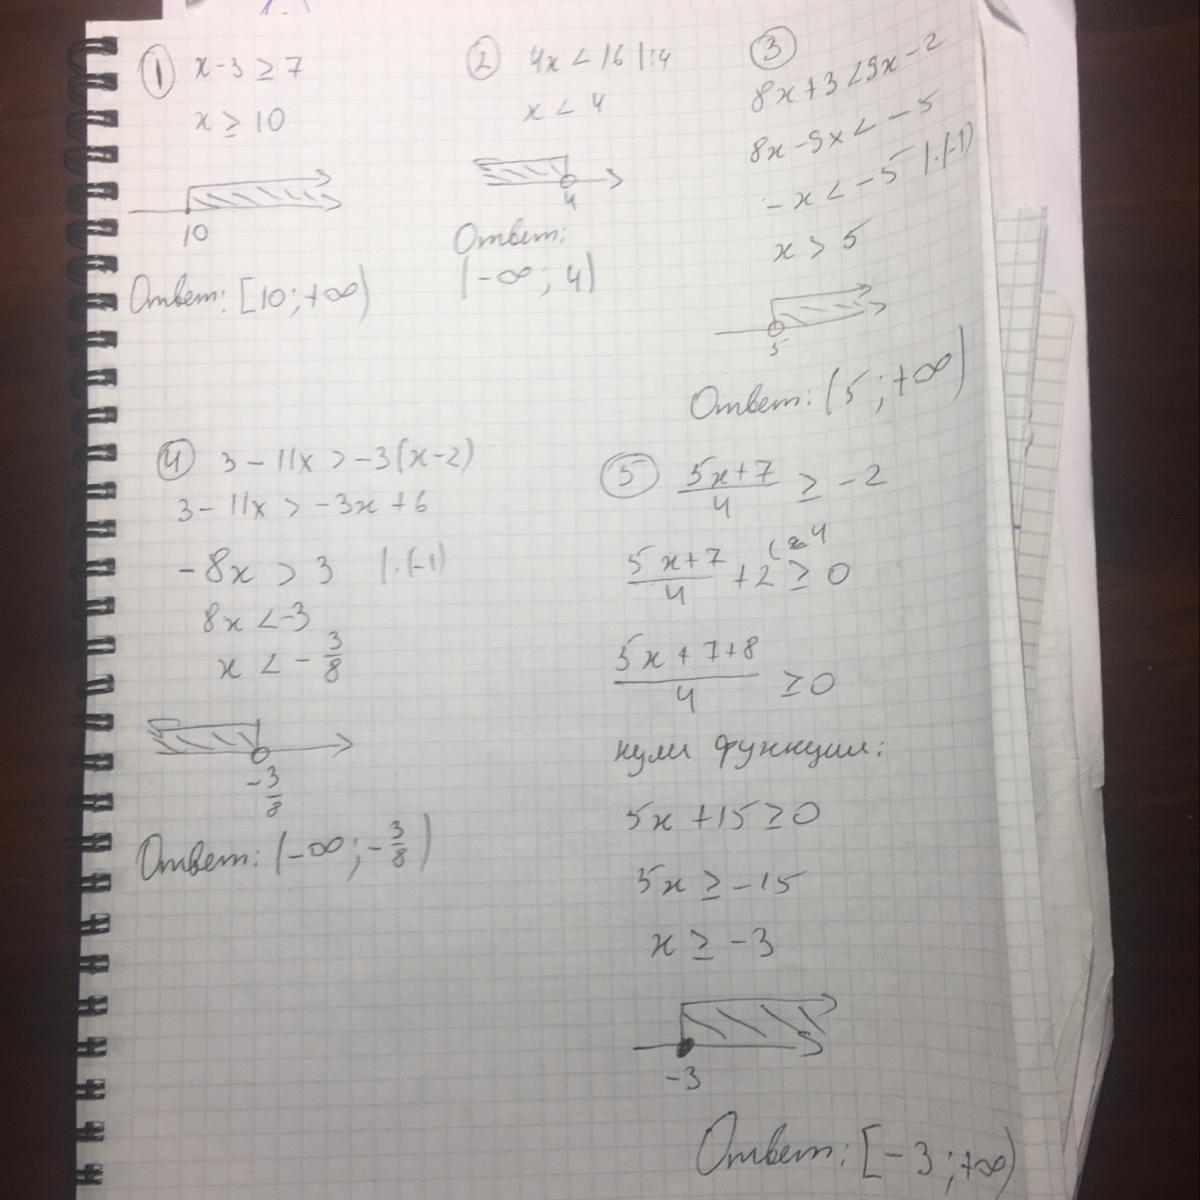 ① x-3 ≥ 7
x ≥ 10
10
Ответ: [10; +∞)
② 4x < 16 |:4
x < 4
4
Ответ:
(-∞; 4)
③
8x+3<9x-2
8x-9x<-5
-x<-5 |·(-1)
x > 5
5
Ответ: (5; +∞)
④ 3-11x > -3(x-2)
3-11x > -3x+6
-8x > 3 |·(-1)
8x < -3
x < -3/8
-3/8
Ответ: (-∞; -3/8)
⑤ (5x+7)/4 ≥ -2
(5x+7)/4 + 2 ≥ 0
(5x+7+8)/4 ≥ 0
нули функции:
5x+15≥0
5x ≥ -15
x ≥ -3
-3
Ответ: [-3; +∞)